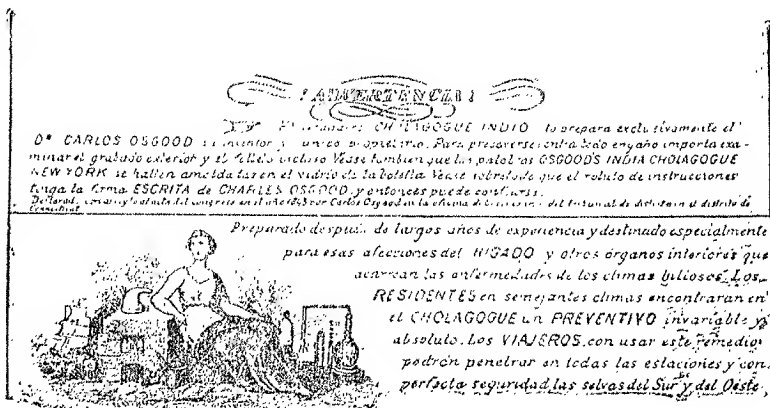 ¡ADVERTENCIA!
CHOLAGOGUE INDIO lo prepara exclusivamente el
Dr CARLOS OSGOOD su inventor y unico propietario. Para preservarse contra todo engaño importa exa-
minar el grabado exterior y el folleto incluso Vease tambien que las palabras OSGOOD'S INDIA CHOLAGOGUE
NEW YORK se hallen amoldadas en el vidrio de la botella Vease sobretodo que el rotulo de instrucciones
tenga la firma ESCRITA de CHARLES OSGOOD, y entonces puede confiarse.
del congreso en el año por Carlos Osgood en la oficina del tribunal de distrito en el distrito de
Connecticut
Preparado después de largos años de experiencia y destinado especialmente
para esas afecciones del HIGADO y otros órganos interiores que
acarrean las enfermedades de los climas biliosos. Los
RESIDENTES en semejantes climas encontraran en
el CHOLAGOGUE un PREVENTIVO invariable y
absoluto. Los VIAJEROS, con usar este remedio
podrán penetrar en todas las estaciones y con
perfecta seguridad las selvas del Sur y del Oeste